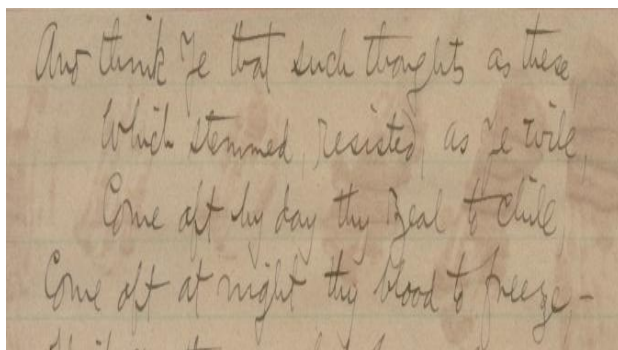 And think Ye that such thoughts as these
Which stemmed, resisted, as Ye will,
Come oft by day thy zeal to chill,
Come oft at night thy blood to freeze –